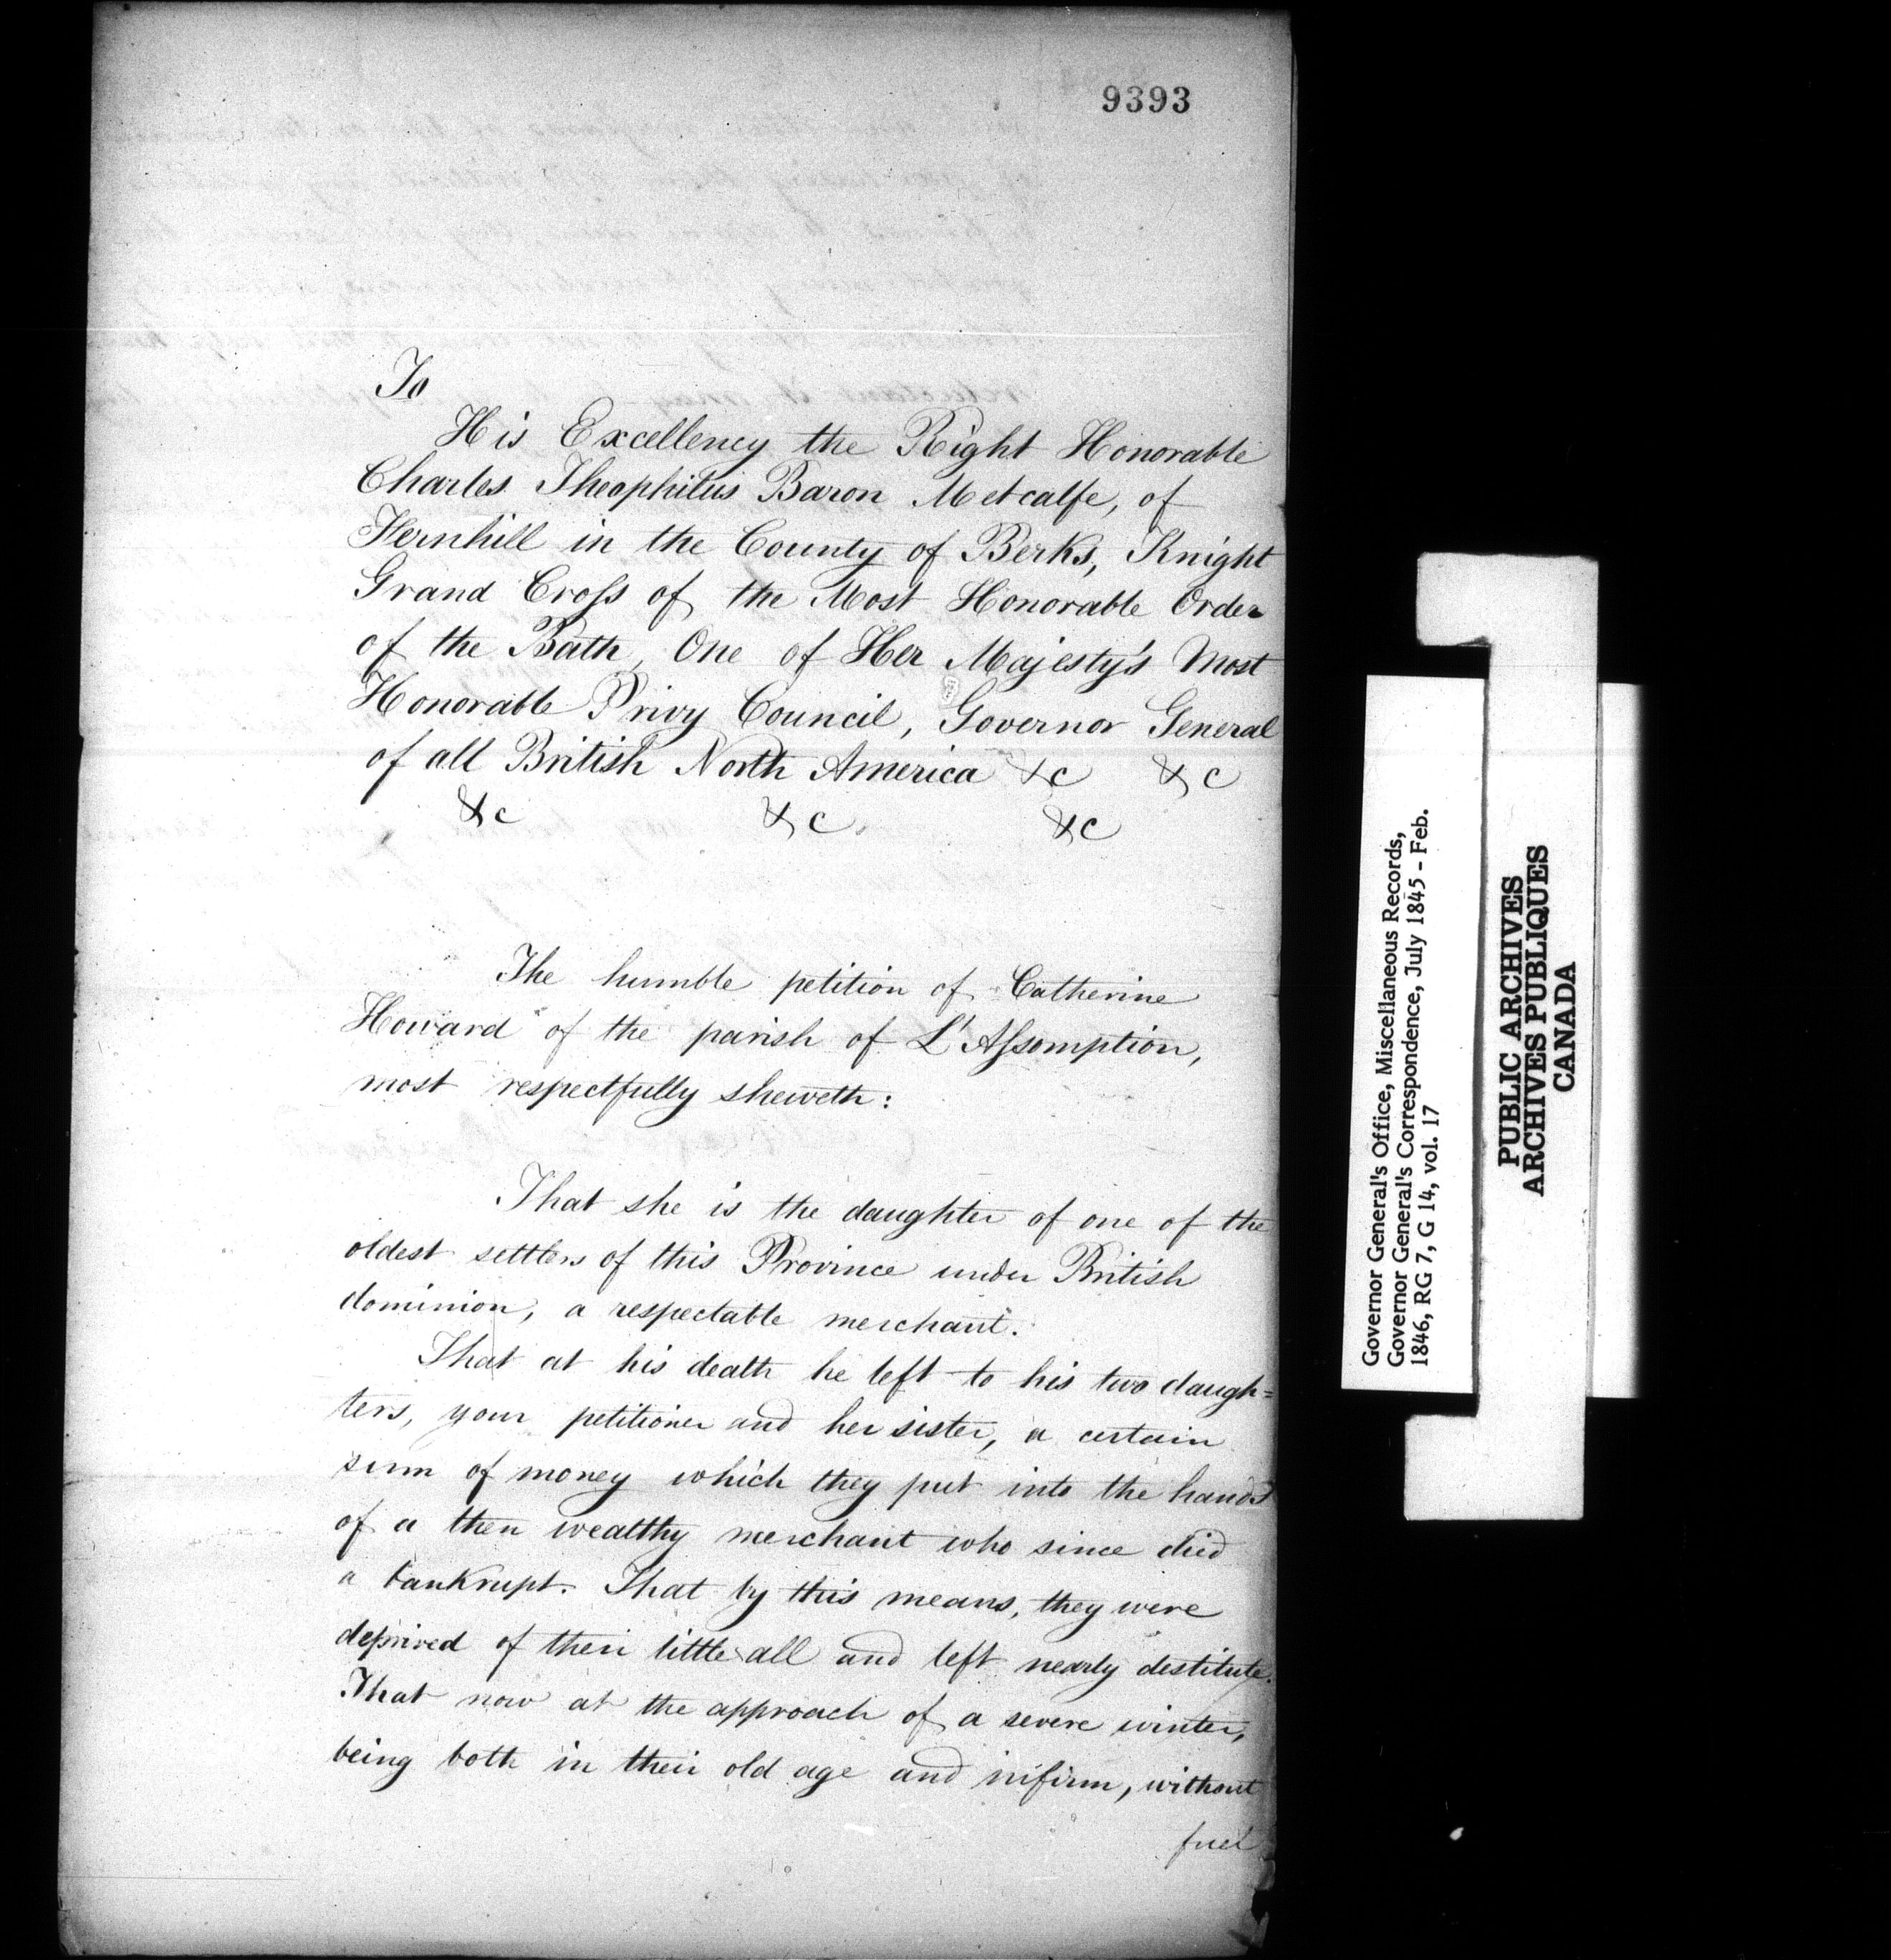 9393
To
His Excellency the Right Honorable
Charles Theophilus Baron Metcalfe, of
Fernhill in the County of Berks, Knight
Grand Cross of the Most Honorable Order
of the Bath, One of Her Majesty's Most
Honorable Privy Council, Governor General
of all British North America &c &c
&c &c &c
The humble petition of Catherine
Howard of the parish of L'Assomption,
most respectfully sheweth:
That she is the daughter of one of the
oldest settlers of this Province under British
dominion, a respectable merchant.
That at his death he left to his two daugh=
ters, your petitioner and her sister, a certain
sum of money which they put into the hands
of a then wealthy merchant who since died
a bankrupt. That by this means, they were
deprived of their little all and left nearly destitute.
That now at the approach of a severe winter,
being both in their old age and infirm, without
fuel
Governor General's Office, Miscellaneous Records,
Governor General's Correspondence, July 1845 - Feb.
1846, RG 7, G 14, vol. 17
PUBLIC ARCHIVES
ARCHIVES PUBLIQUES
CANADA